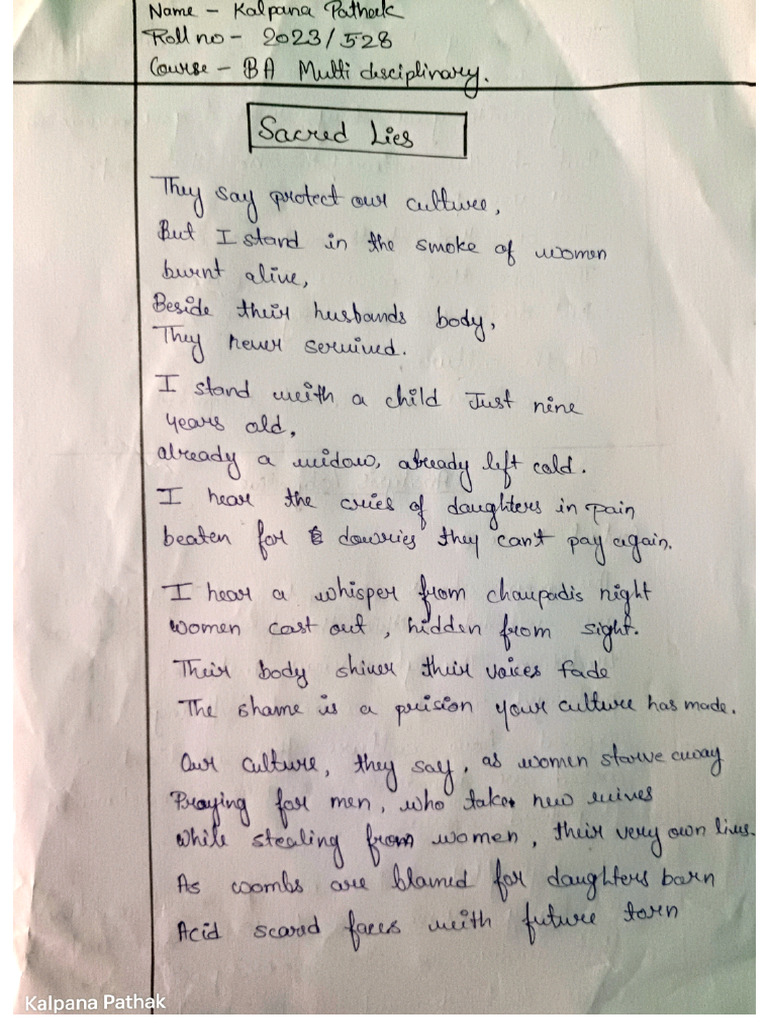 Name - Kalpana Pathak
Roll no - 2023/528
Course - BA Multidisciplinary.
Sacred Lies
They say protect our culture,
But I stand in the smoke of women
burnt alive,
Beside their husbands body,
They never servived.
I stand with a child Just nine
years old,
already a widow, already left cold.
I hear the cries of daughters in pain
beaten for dowries they can't pay again.
I hear a whisper from chaupadis night
women cast out, hidden from sight.
Their body shiver their voices fade
The shame is a prision your culture has made.
Our culture, they say, as women starve away
Praying for men, who take new wives
while stealing from women, their very own lives.
As wombs are blamed for daughters born
Acid scared faces with future torn
Kalpana Pathak